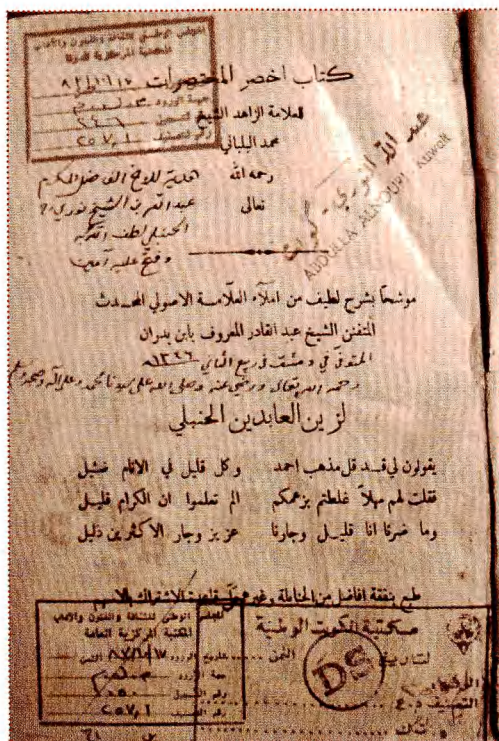 المجلس الوطني للثقافة والفنون والآداب
المكتبة المركزية
كتاب اخصر المختصرات
للعلامة الزاهد الشيخ
محمد البلباني
رحمه الله
تعالى
هدية للاخ الفاضل المكرم
عبد الله بن الشيخ نوري
الحنبلي لطف الله به
وفتح عليه آمين
عبد الله النوري - كويت
ABDULLA ALNOURI - Kuwait
موشحا بشرح لطيف من املآء العلآمة الاصولي المحدث
المتفنن الشيخ عبد القادر المعروف بابن بدران
المتوفى في دمشق في ربيع الثاني ١٣٤٦
رحمه الله تعالى ورضي عنه وصلى الله على سيدنا محمد وعلى آله وصحبه وسلم
لزين العابدين الحنبلي
يقولون لي قد قل مذهب احمد وكل قليل في الانام ضئيل
فقلت لهم مهلاً غلطتم بزعمكم الم تعلموا ان الكرام قليل
وما ضرنا انا قليل وجارنا عزيز وجار الاكثرين ذليل
طبع بنفقة افاضل من الحنابلة وغيرهم على قاعدة الاشتراك بالاسهم
المجلس الوطني للثقافة والفنون والآداب
المكتبة المركزية العامة
تاريخ الورود
جهة الورود
رقم التسجيل
رقم التصنيف ٢٥٧,١
مكتبة الكويت الوطنية
التاريخ
الثمن
DS
التصنيف